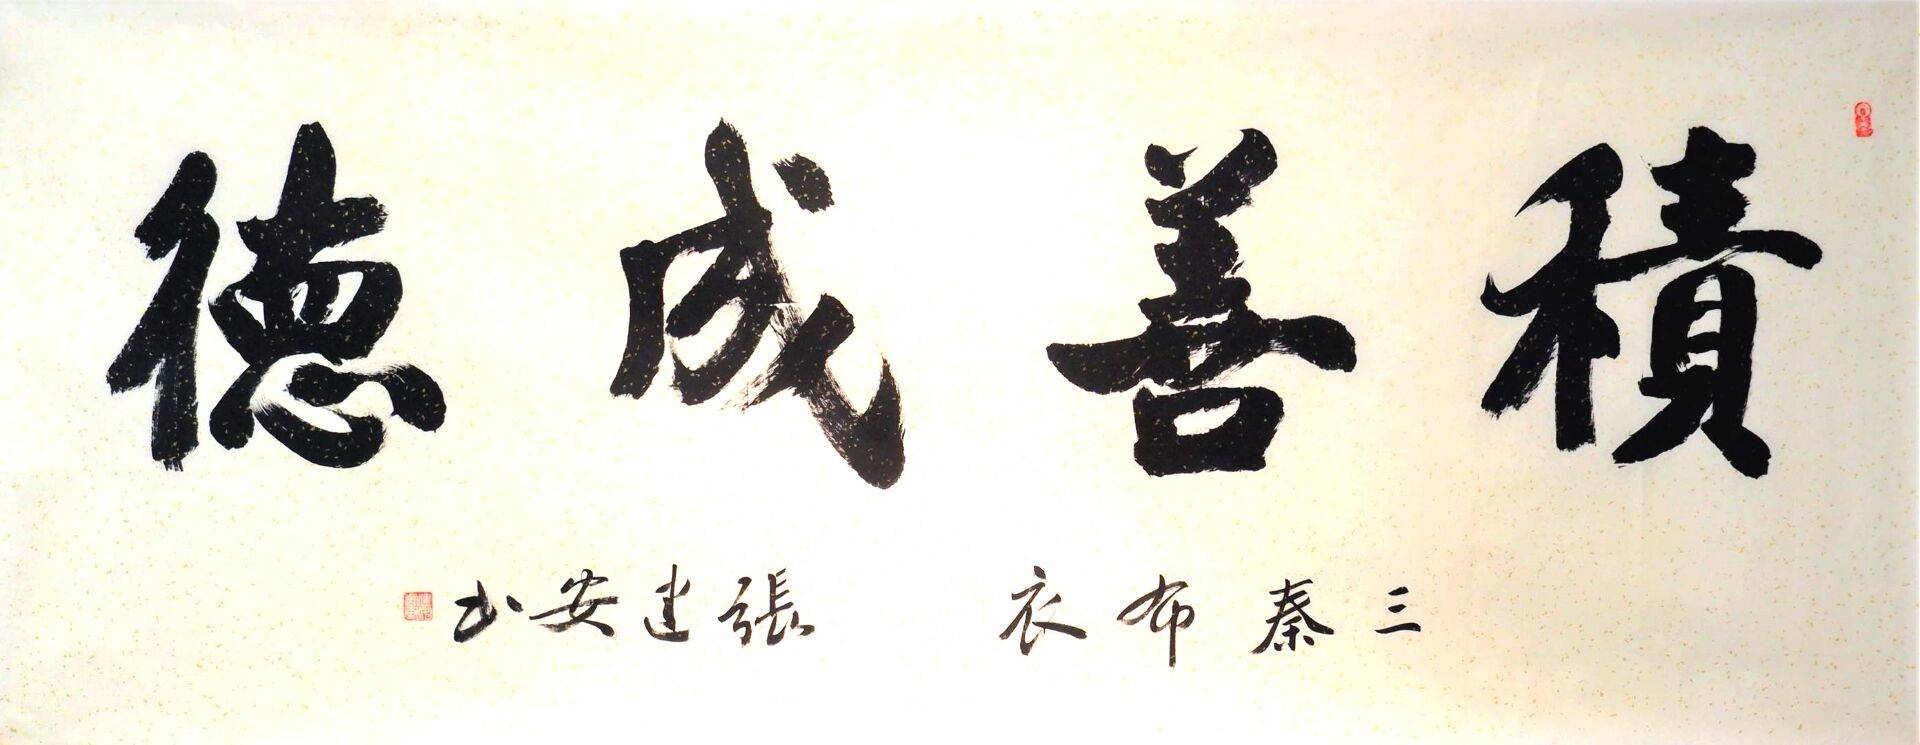 積善成德
三秦布衣 張建安书